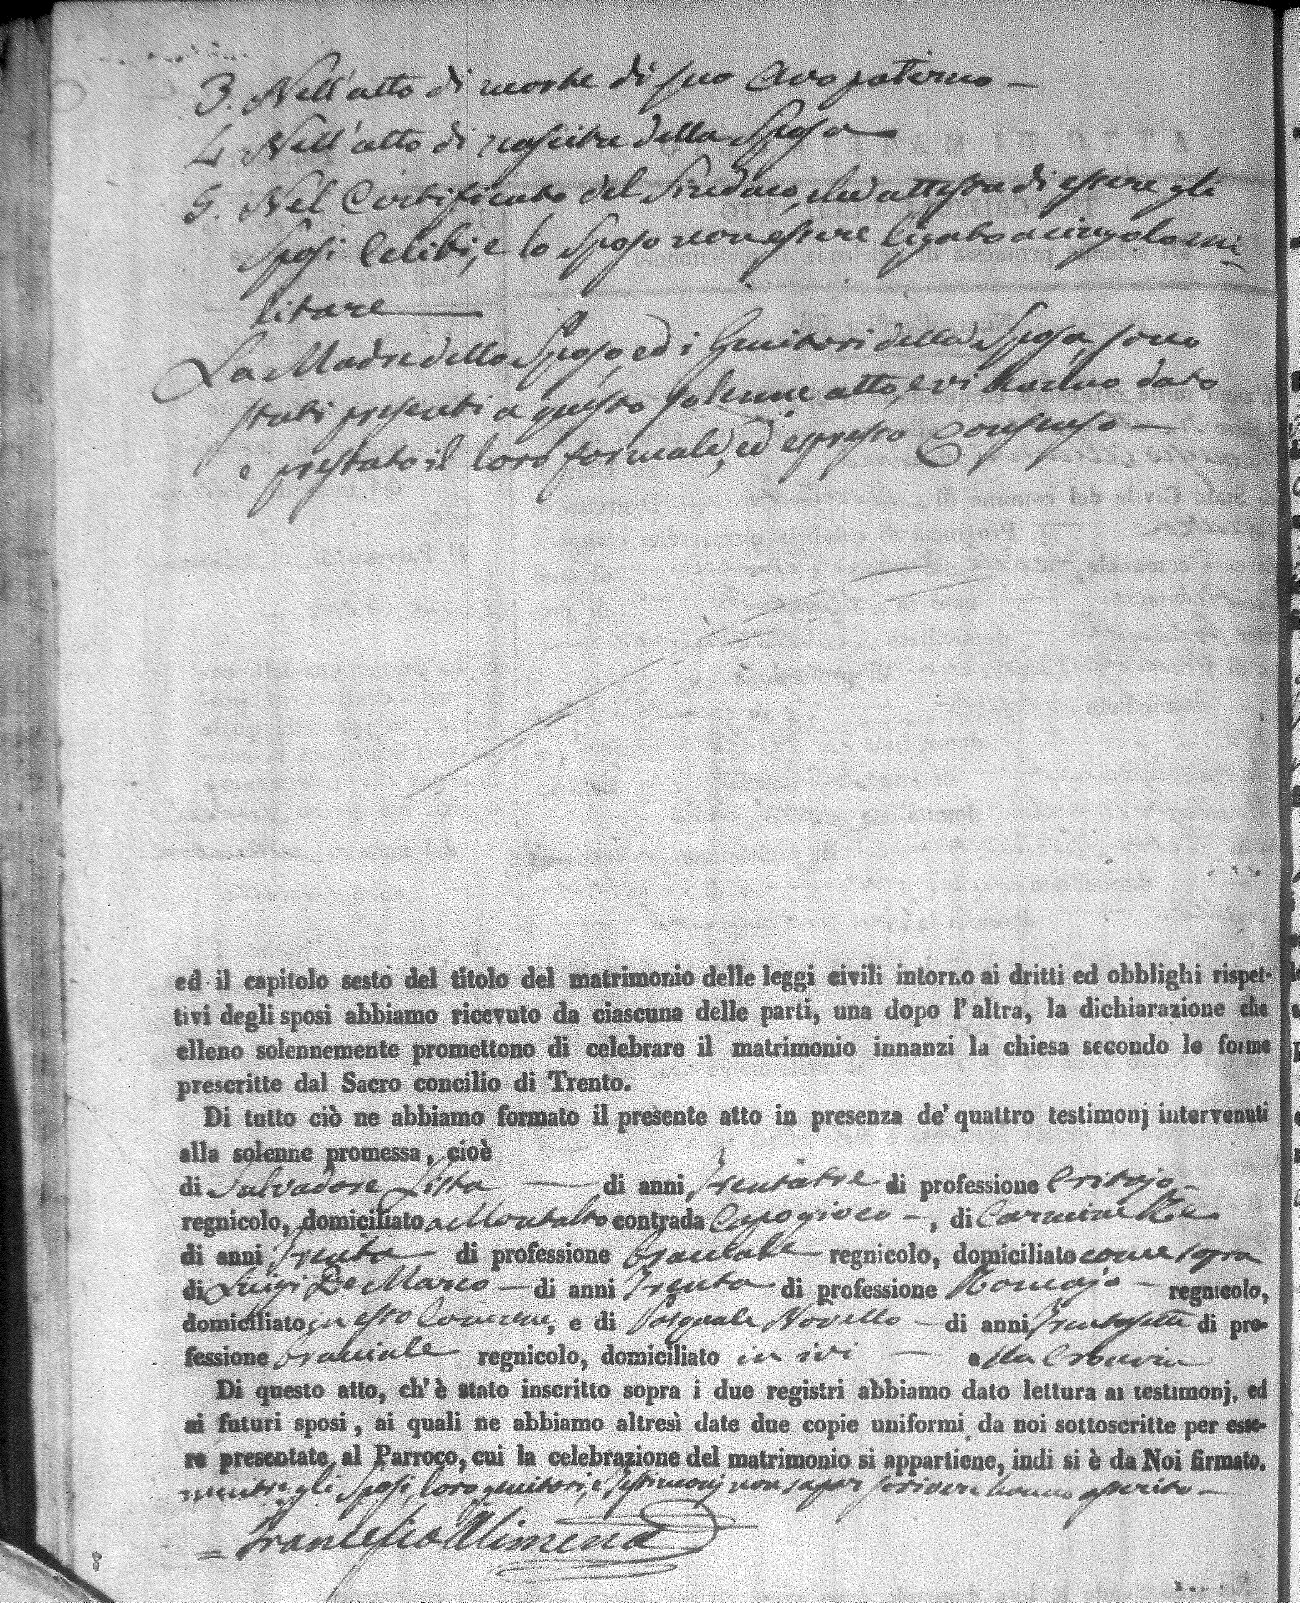 3. Nell'atto di morte di suo Avo paterno —
4. Nell'atto di nascita della Sposa —
5. Nel Certificato del Sindaco, che attesta di essere gli
Sposi Celibi, e lo Sposo non essere ligato a cingolo mi-
litare —
La Madre dello Sposo, ed i Genitori della Sposa, sono
stati presenti a questo solenne atto, e vi hanno dato
e prestato il loro formale, ed espresso Consenso —
ed il capitolo sesto del titolo del matrimonio delle leggi civili intorno ai dritti ed obblighi rispet-
tivi degli sposi abbiamo ricevuto da ciascuna delle parti, una dopo l'altra, la dichiarazione che
elleno solennemente promettono di celebrare il matrimonio innanzi la chiesa secondo le forme
prescritte dal Sacro concilio di Trento.
Di tutto ciò ne abbiamo formato il presente atto in presenza de' quattro testimonj intervenuti
alla solenne promessa, cioè
di Salvadore Lista — di anni Trentatre di professione
regnicolo, domiciliato a Montalto contrada Capogioco —, di Carmine
di anni Trenta — di professione Bracciale regnicolo, domiciliato come sopra
di Luigi De Marco — di anni Trenta di professione — regnicolo,
domiciliato in esto Comune, e di Pasquale Novello — di anni Trentasette di pro-
fessione Bracciale regnicolo, domiciliato in ivi —
Di questo atto, ch'è stato inscritto sopra i due registri abbiamo dato lettura ai testimonj, ed
ai futuri sposi, ai quali ne abbiamo altresì date due copie uniformi da noi sottoscritte per esse-
re presentate al Parroco, cui la celebrazione del matrimonio si appartiene, indi si è da Noi firmato.
mentre gli Sposi, loro genitori, e Testimonj non saper scrivere hanno asserito —
= Francesco Alimena